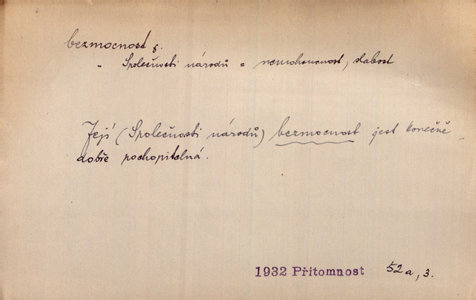 bezmocnost ž.
" Společnosti národů = nemohoucnost, slabost
Její (Společnosti národů) bezmocnost jest konečně
dobře pochopitelná.
1932 Přítomnost 52a, 3.